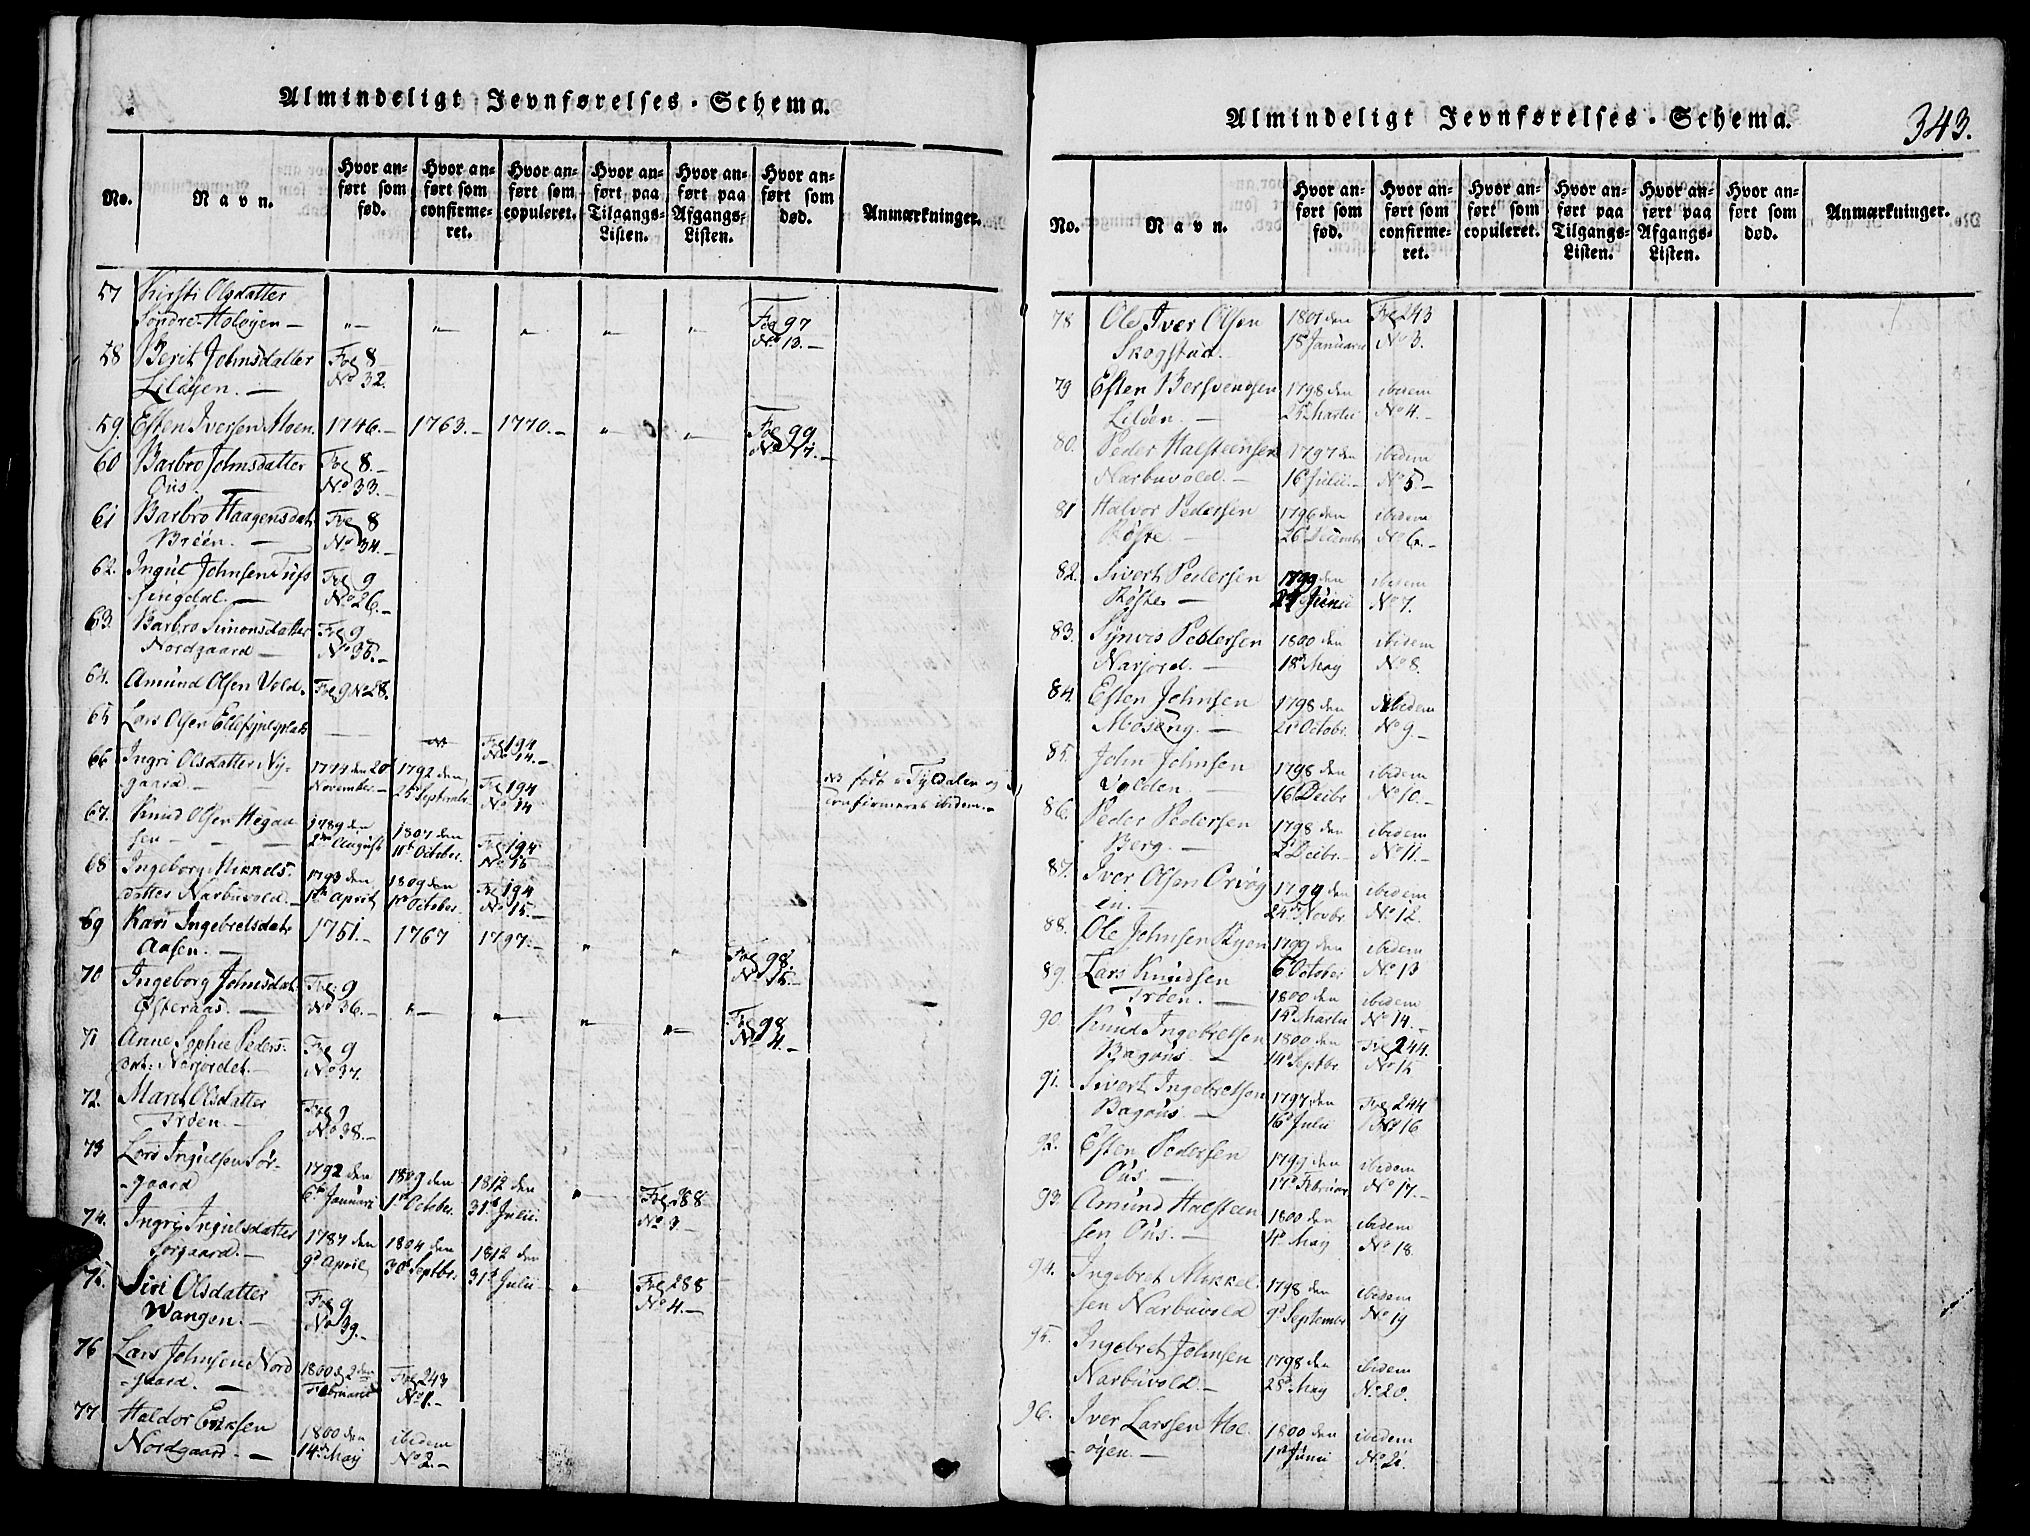 Almindeligt Jevnførelses-Schema.
No.
Navn.
Hvor anført som fød.
Hvor anført som confirmeret.
Hvor anført som copuleret.
Hvor anført paa Tilgangs-Listen.
Hvor anført paa Afgangs-Listen.
Hvor anført som død.
Anmærkninger.
57 Kirsti Olsdatter
Søndre-Holøyen — „— „ „ „ „ Fol 97 No 13.—
58 Berit Johnsdatter Fol 8
Liløyen. — No 32.
59. Esten Iversen Moen. 1746.— 1763.— 1770.— „ „ Fol 99 No 17.—
60 Barbro Johnsdatter Fol 8.—
Ous. No 33.—
61 Barbro Haagensdatr Fol 8
Breen. — No 34.—
62. Ingul Johnsen Tufs Fol 9
singdal. — No 26.—
63. Barbro Simonsdatter Fol 9
Nordgaard — No 35.—
64. Amund Olsen Vold. Fol 9 No 28.
65 Lars Olsen Ellefsplads — — Fol 194 No 14.—
66 Ingri Olsdatter Ny- 1774 den 20 1792 den Fol 194
gaard. — November.— 25 Septembr. No 14
født i Tyldalen og
confirmeret ibidem.—
67. Knud Olsen Hegaa 1789 den 1807 den Fol 194
sen — 2den August 11t October. No 15
68 Ingeborg Mikkels- 1793 den 1809 den Fol 194
datter Narbuvold.— 1ste April 1st October. No 15.—
69 Kari Ingebretsdatr 1751.— 1767 1797.— „ „ Fol 98.
Aasen. — No 15.—
70 Ingeborg Johnsdat. Fol 9
Østeraas. — No 36.— „— „ „ „ Fol 98 No 4.—
71 Anne Sophie Peders- Fol 9
dat: Norjordet.— No 37.
72. Maret Olsdatter Fol 9
Trøen. — No 38.—
73 Lars Ingulsen Sør- 1792 den 1809 den 1812 den
-gaard 6te Januari 1st October. 31te Julii. „ Fol 288 No 3.—
74. Ingri Ingulsdatter 1787 den 1804 den 1812 den
Sørgaard.— 9d April 30d Septbr. 31te Julii— „ Fol 288 No 4.—
75. Siri Olsdatter Fol 9
Wangen.— No 39.—
76 Lars Johnsen Nord 1800 d 2den Fol 243
-gaard. — Februarii No 1.—
77 Haldor Eriksen 1800 den ibidem
Nordgaard.— 14d May No 2.—
Almindeligt Jevnførelses-Schema.
343.
No.
Navn.
Hvor anført som fød.
Hvor anført som confirmeret.
Hvor anført som copuleret.
Hvor anført paa Tilgangs-Listen.
Hvor anført paa Afgangs-Listen.
Hvor anført som død.
Anmærkninger.
78 Ole Iver Olsen 1801 den Fol 243
Skogstad. 18 Januarii No 3.
79 Esten Bersvendsen 1798 den ibidem
Liløen. — 25 Martii No 4.—
80. Peder Halsteensen 1797 den ibidem
Narbuvold.— 16 Julii.— No 5.—
81 Halvor Pedersen 1796 den ibidem
Røste. — 26 Decembr No 6.—
82. Sivert Pedersen 1799 den ibidem
Røste — 24 Junii No 7.
83. Synvis Pedersen 1800 den ibidem
Narjord.— 18d May No 8.
84. Esten Johnsen 1798 den ibidem
Moseng.— 21 Octobr. No 9.—
85. John Johnsen 1798 den ibidem
Volden. — 16 Decbr No 10.—
86. Peder Pedersen 1798 den ibidem
Berg. — 2d Decbr.— No 11.—
87. Iver Olsen Orvøg 1799 den ibidem
en. — 24d Novbr No 12.
88. Ole Johnsen Ryen 1799 den ibidem
6 October No 13
89. Lars Knudsen 1800 den ibidem
Trøen. — 14 Martii No 14.—
90. Knud Ingebretsen 1800 den Fol 244.
Bagous. — 14d Septbr. No 15
91. Sivert Ingebretsen 1797 den Fol 244
Bagous. — 16d Julii No 16
92. Esten Pedersen 1799 den ibidem
Ous. — 17d Februar No 17.—
93. Amund Halsteen 1800 den ibidem
sen Ous.— 4d May No 18.
94. Ingebret Mikkel- 1798 den ibidem
sen Narbuvold 9d Septembr No 19
95. Ingebret Johnsen 1798 den ibidem
Narbuvold.— 28d May No 20.
96. Iver Larssen Hol- 1800 den ibidem
øyen.— 1st Junii No 21.